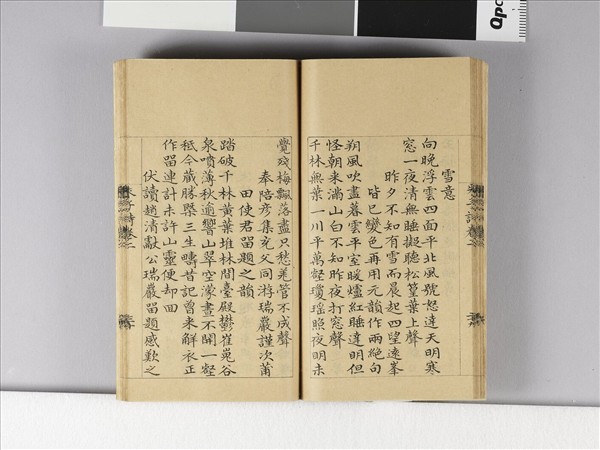 雪意
向晚浮雲四面平北風號怒達天明寒
窓一夜清無睡擬聽松篁葉上聲
昨夕不知有雪而晨起四望遠峯
皆已變色再用元韻作兩絶句
朔風吹盡暮雲平室暖爐紅睡達明但
怪朝来滿山白不知昨夜打窓聲
千林無葉一川平萬壑瓊瑶照夜明未
覺殘梅飄落盡只愁羌管不成聲
奉陪彦集充父同游瑞巖謹次莆
田使君留題之韻
踏破千林黄葉堆林間臺殿鬱崔嵬谷
泉噴薄秋逾響山翠空濛晝不開一壑
秪今藏勝槩三生疇昔記曾来解衣正
作留連計未許山靈便却回
伏讀趙清獻公瑞巖留題感歎之